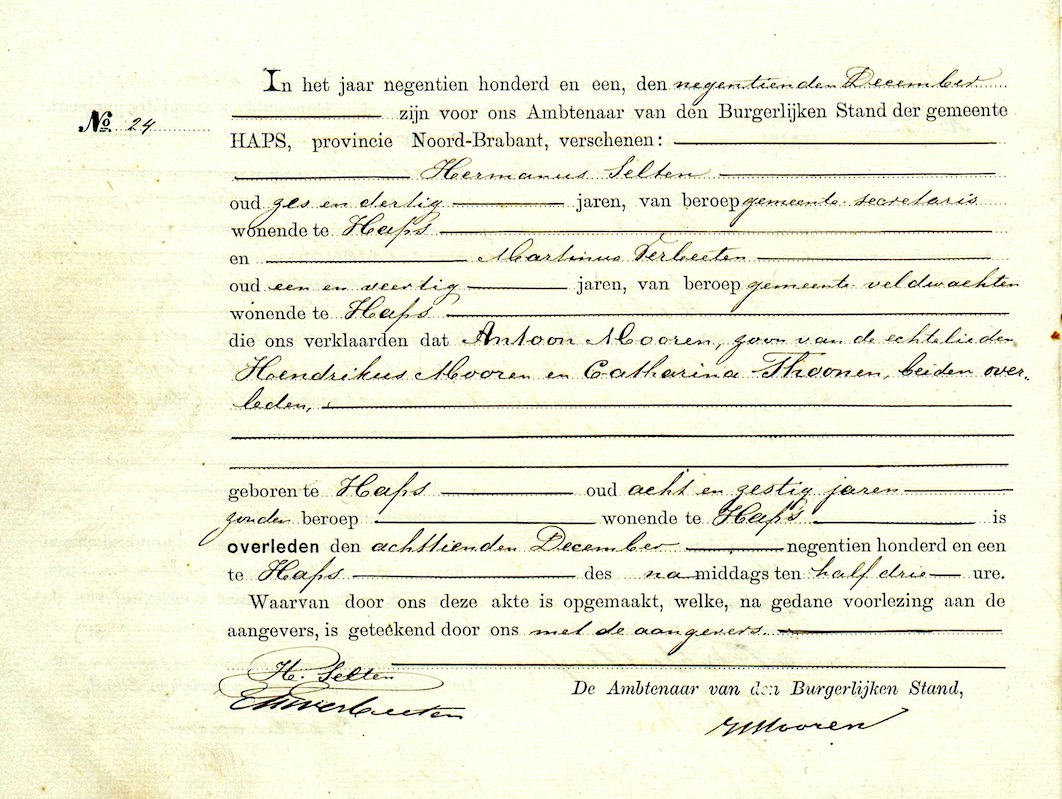 In het jaar negentien honderd en een, den negentienden December
zijn voor ons Ambtenaar van den Burgerlijken Stand der gemeente
No. 24
HAPS, provincie Noord-Brabant, verschenen:
Hermanus Selten
oud zes en dertig jaren, van beroep gemeente secretaris
wonende te Haps
en Martinus Verbeeten
oud een en veertig jaren, van beroep gemeente veldwachter
wonende te Haps
die ons verklaarden dat Antoon Mooren, zoon van de echtelieden
Hendrikus Mooren en Catharina Thoonen, beiden over-
leden,
geboren te Haps oud acht en zestig jaren
zonder beroep wonende te Haps is
overleden den achttienden December negentien honderd en een
te Haps des na middags ten half drie ure.
Waarvan door ons deze akte is opgemaakt, welke, na gedane voorlezing aan de
aangevers, is geteekend door ons met de aangevers.
H. Selten
De Ambtenaar van den Burgerlijken Stand,
Verbeeten
Mooren